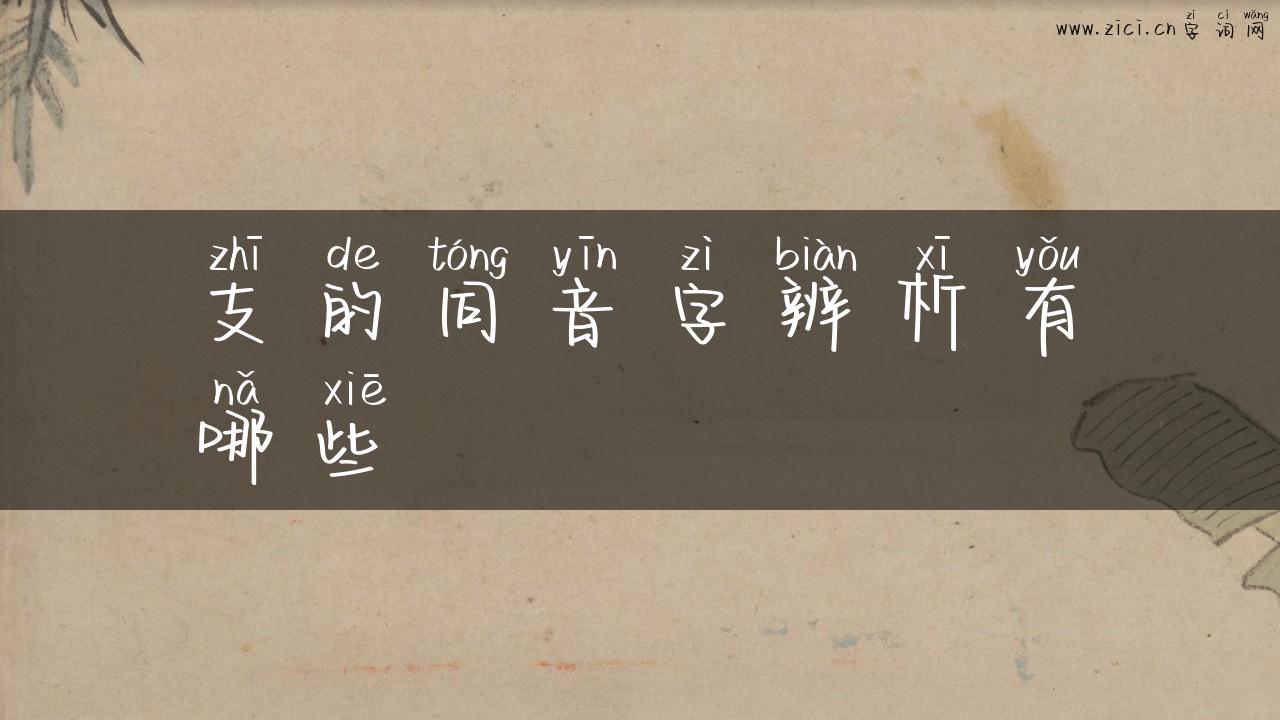 zì cí wǎng
www.zici.cn 字词网
zhī de tóng yīn zì biàn xī yǒu
支的同音字辨析有
nǎ xiē
哪些